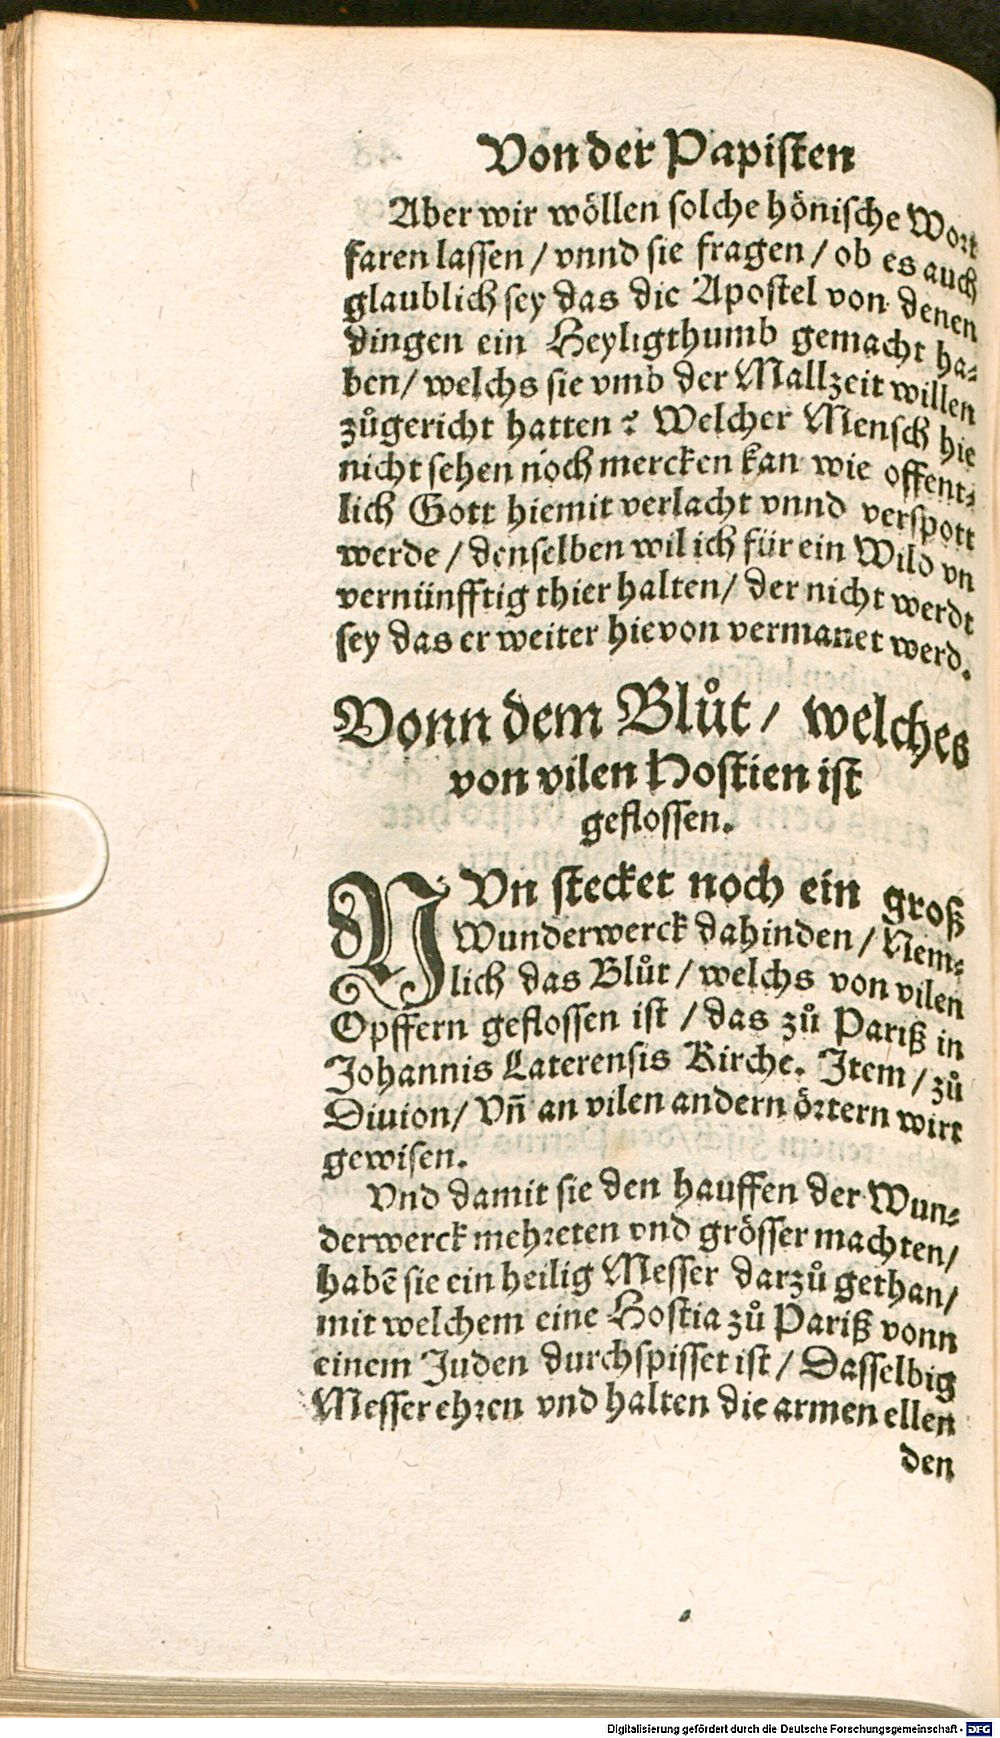 Von der Papisten
Aber wir wöllen solche hönische Wort
faren lassen / vnnd sie fragen / ob es auch
glaublich sey das die Apostel von denen
dingen ein Heyligthumb gemacht ha-
ben / welchs sie vmb der Mallzeit willen
zůgericht hatten? Welcher Mensch hie
nicht sehen noch mercken kan wie offent-
lich Gott hiemit verlacht vnnd verspott
werde / denselben wil ich für ein Wild vn
vernünfftig thier halten / der nicht werdt
sey das er weiter hievon vermanet werd.
Vonn dem Blůt / welches
von vilen Hostien ist
geflossen.
NVn stecket noch ein groß
Wunderwerck dahinden / Nem-
lich das Blůt / welchs von vilen
Opffern geflossen ist / das zů Pariß in
Johannis Laterensis Kirche. Item / zů
Diuion / Vñ an vilen andern örtern wirt
gewisen.
Vnd damit sie den hauffen der Wun-
derwerck mehreten vnd grösser machten /
habē sie ein heilig Messer darzů gethan /
mit welchem eine Hostia zů Pariß vonn
einem Juden durchspisset ist / Dasselbig
Messer ehren vnd halten die armen ellen
den
Digitalisierung gefördert durch die Deutsche Forschungsgemeinschaft - DFG